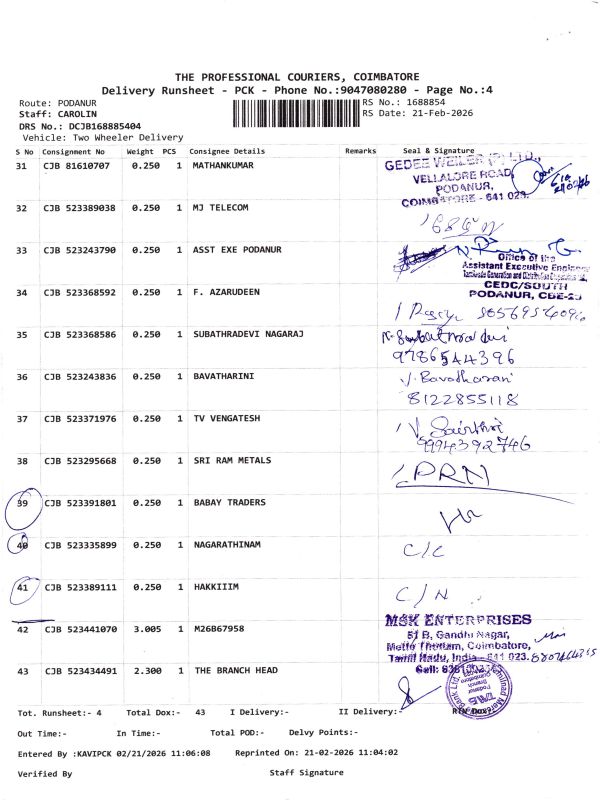 THE PROFESSIONAL COURIERS, COIMBATORE
Delivery Runsheet - PCK - Phone No.:9047080280 - Page No.:4
Route: PODANUR RS No.: 1688854
Staff: CAROLIN RS Date: 21-Feb-2026
DRS No.: DCJB168885404
Vehicle: Two Wheeler Delivery
S No Consignment No Weight PCS Consignee Details Remarks Seal & Signature
31 CJB 81610707 0.250 1 MATHANKUMAR
GEDEE WEILER (P) LTD.,
VELLALORE ROAD,
PODANUR,
COIMBATORE - 641 023.
32 CJB 523389038 0.250 1 MJ TELECOM
33 CJB 523243790 0.250 1 ASST EXE PODANUR
Office of the
Assistant Executive Engineer
CEDC/SOUTH
PODANUR, CBE-23
34 CJB 523368592 0.250 1 F. AZARUDEEN
35 CJB 523368586 0.250 1 SUBATHRADEVI NAGARAJ
9786544396
36 CJB 523243836 0.250 1 BAVATHARINI
V. Bavatharani
8122855118
37 CJB 523371976 0.250 1 TV VENGATESH
9943927746
38 CJB 523295668 0.250 1 SRI RAM METALS
PRN
39 CJB 523391801 0.250 1 BABAY TRADERS
40 CJB 523335899 0.250 1 NAGARATHINAM C/C
41 CJB 523389111 0.250 1 HAKKIIIM C/N
42 CJB 523441070 3.005 1 M26B67958
MSK ENTERPRISES
51 B, Gandhi Nagar,
Mettu Thottam, Coimbatore,
Tamil Nadu, India - 641 023.
43 CJB 523434491 2.300 1 THE BRANCH HEAD
Tot. Runsheet:- 4 Total Dox:- 43 I Delivery:- II Delivery:-
Out Time:- In Time:- Total POD:- Delvy Points:-
Entered By :KAVIPCK 02/21/2026 11:06:08 Reprinted On: 21-02-2026 11:04:02
Verified By Staff Signature